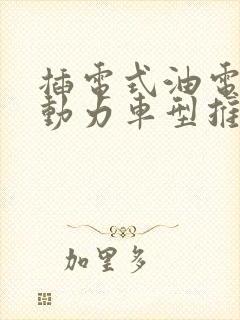 插電式油電
動力車型推
加里多